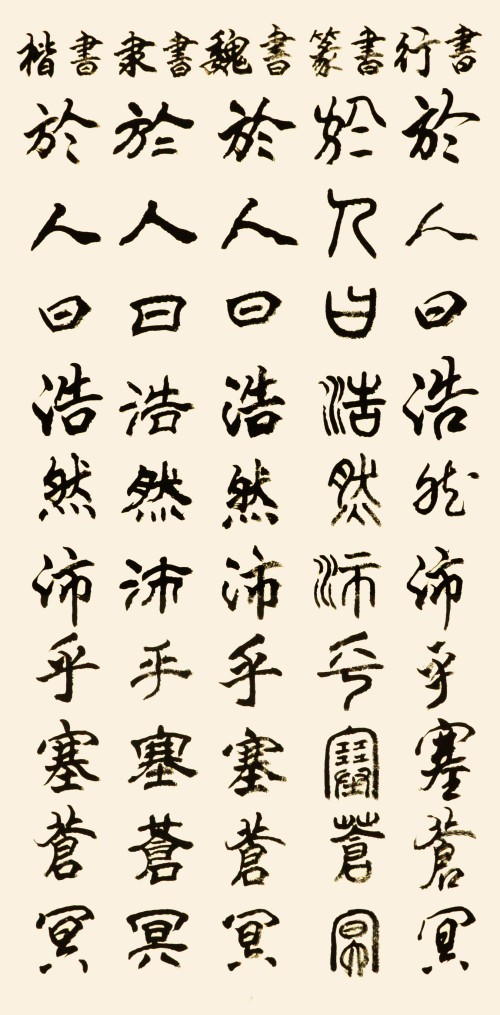 楷書於人曰浩然沛乎塞蒼冥
隶書於人曰浩然沛乎塞蒼冥
魏書於人曰浩然沛乎塞蒼冥
篆書於人曰浩然沛乎塞蒼冥
行書於人曰浩然沛乎塞蒼冥